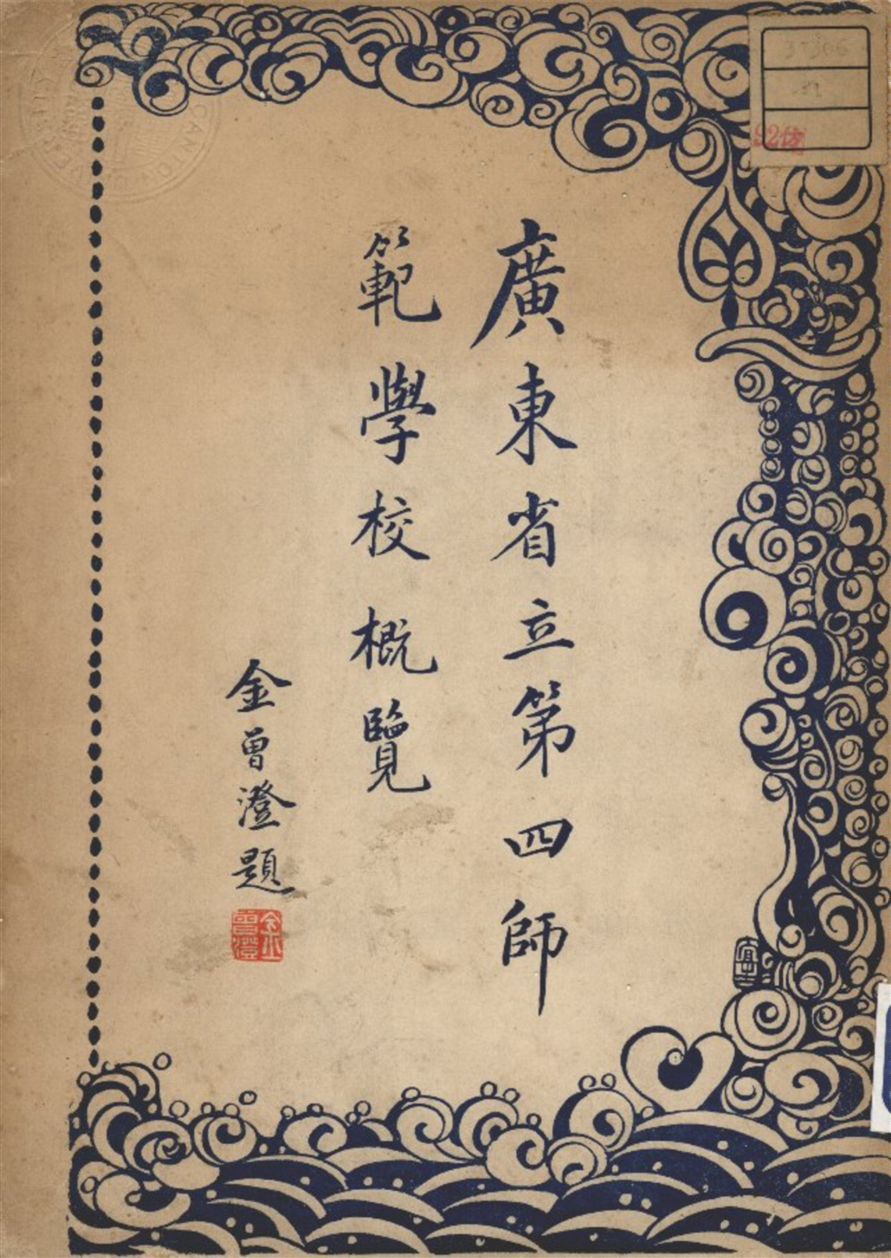 廣東省立第四師
範學校概覽
金曾澄題
金曾澄
CANTON